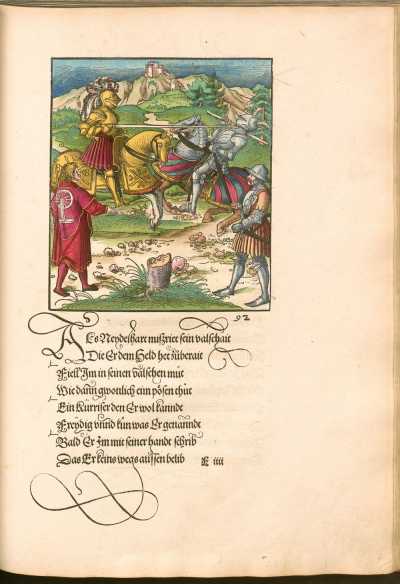 92
Als Neydelhart mißriet sein valschait
Die Er dem Held het zůberait
Fiell Im in seinen valschen můt
Wie dann gwonlich einn pösen thůt
Ein Kürriser den Er wol kanndt
Freydig vnnd kůn was Er genanndt
Bald Er im mit seiner handt schrib
Das Er keins wegs aussen belib
E iiii